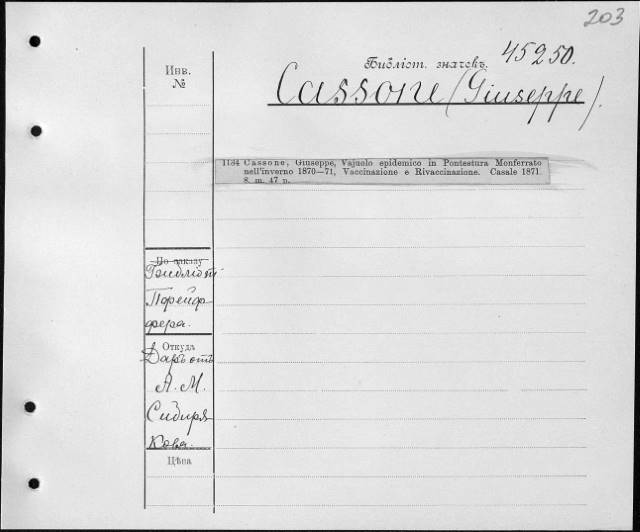 203
Инв. №
Библіот. значекъ. 45250.
Cassone (Giuseppe).
1134 Cassone, Giuseppe, Vajuolo epidemico in Pontestura Monferrato
nell'inverno 1870—71, Vaccinazione e Rivaccinazione. Casale 1871.
8. m. 47 p.
По заказу
Библіот
Пфейф
фера.
Откуда
Даръ отъ
А. М.
Сибиря
кова.
Цѣна